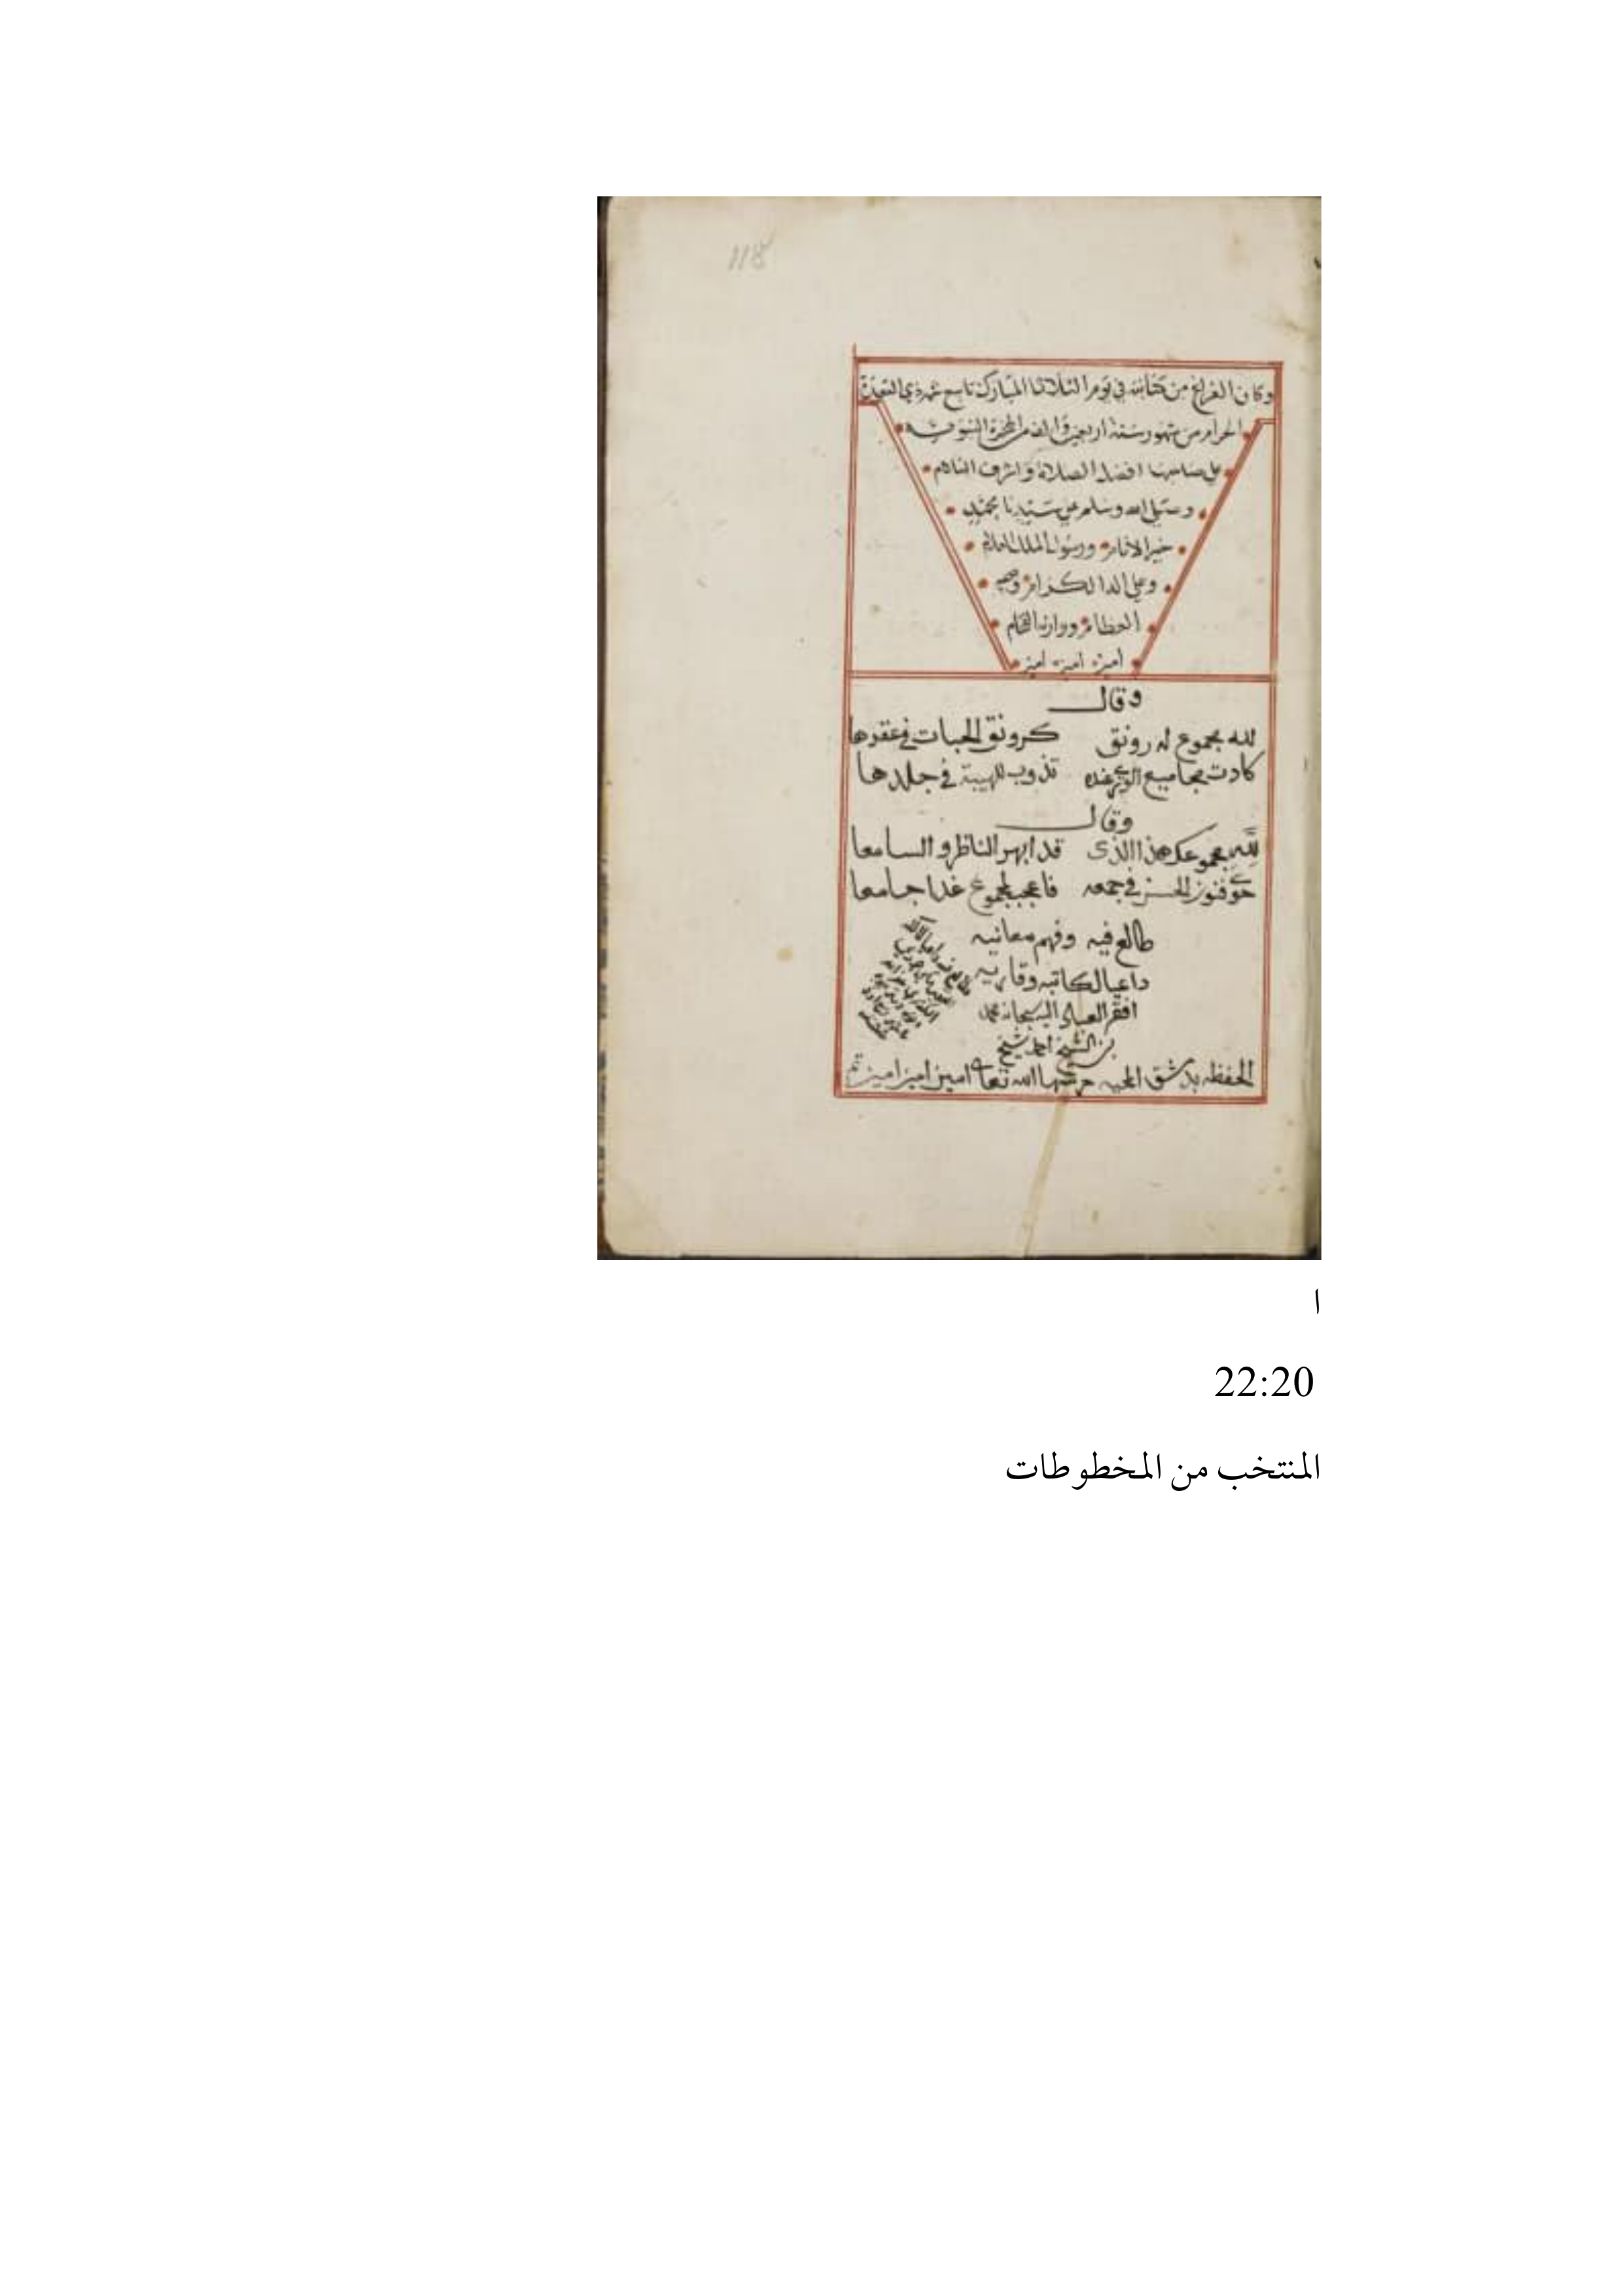 118
وكان الفراغ من كتابته في يوم الثلاثا المبارك تاسع شهر ذي القعدة
الحرام من شهور سنة اربعين والف من الهجرة النبويه
على صاحبها افضل الصلاة واشرف السلام
وصلى الله وسلم على سيدنا محمد
خير الانام ورسول الملك العلام
وعلى اله الكرام وصحبه
العظام
امين امين امين
وقال
لله مجموع له رونق كرونق الحبات في عقدها
كادت مجاميع الورى عنده تذوب للهيبة في جلدها
وقال
لله مجموعك هذا الذى قد ابهر الناظر والسامعا
حوى فنون الحسن في جمعه فاعجب لمجموع غدا جامعا
طالع فيه وفهم معانيه
داعيا لكاتبه وقاريه
افقر العباد اليه سبحانه محمد
بن الشيخ احمد شيخ
الحفظه بدمشق المحميه حرسها الله تعالى امين امين امين
ا
22:20
المنتخب من المخطوطات